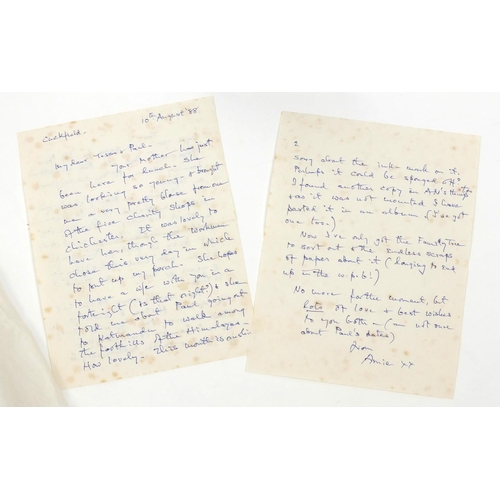 10th August '88
Cuckfield -
My dear Tessa & Paul -
Your Mother has just
been here for lunch. She
was looking so young & brought
me a very pretty blouse from one
of the five charity shops in
Chichester. It was lovely to
have her, though the workmen
chose this very day in which
to put up my porch. She hopes
to have a w/e with you in a
fortnight (is that right?) & she
told me about Paul going out
to Katmandu to walk among
the foothills of the Himalayas -
How lovely - This month is
2
sorry about the ink mark on it.
Perhaps it could be sponged off?
I found another copy in AN's things
& as it was not mounted I have
pasted it in an album (I've got
one too.)
Now I've only got the Family Tree
to sort out & the endless scraps
of paper about it (longing to end
up in the w.p.b!)
No more for the moment, but
lots of love & best wishes
to you both - (I'm not one
about Paul's dates)
from
Annie xx